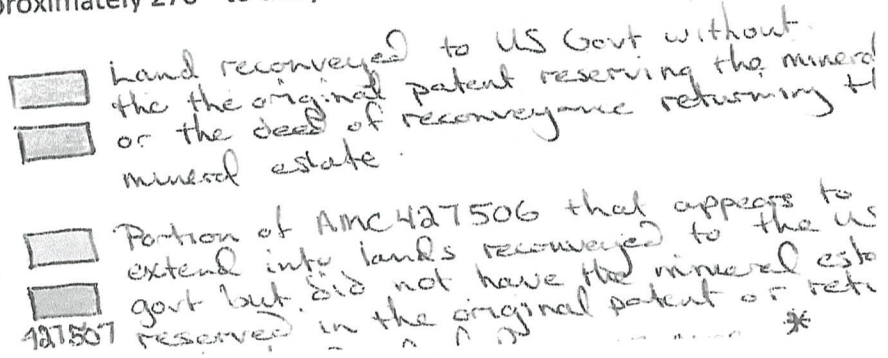 Land reconveyed to US Govt without
the the original patent reserving the mineral
or the deed of reconveyance returning
mineral estate.
Portion of AMC427506 that appears to
extend into lands reconveyed to the US
govt but did not have the mineral
427507 reserved in the original patent or
*